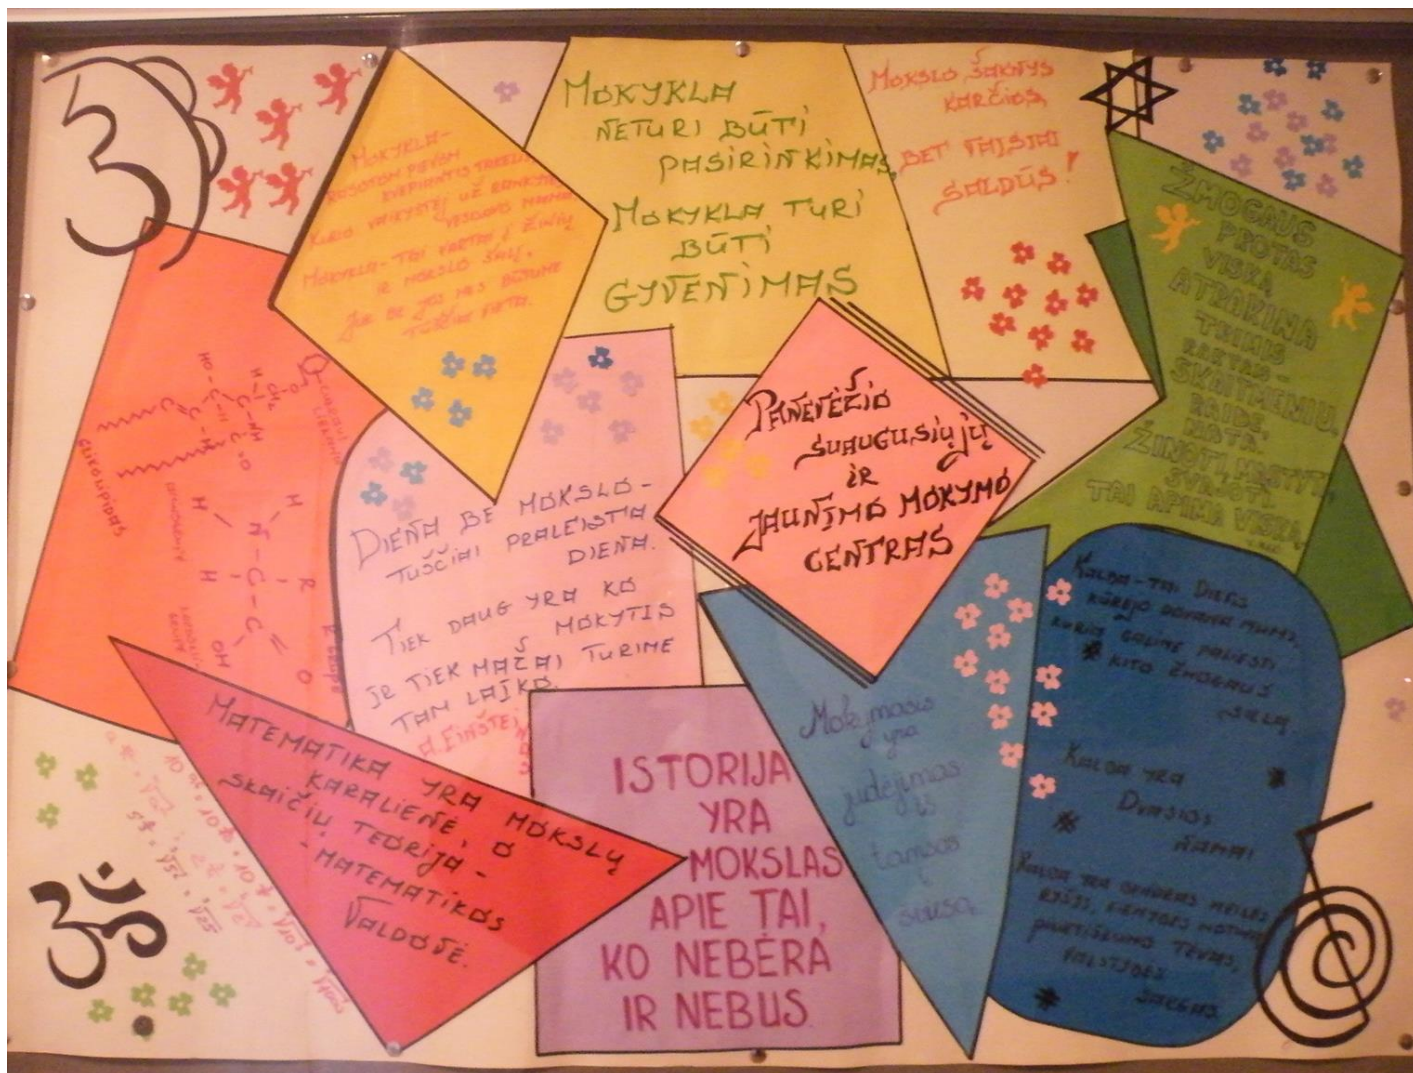 MOKYKLA-
RASOTOM PIEVOM
VINGIANTIS TAKELIS
KURIO VAIKYSTĖJ UŽ RANKYTĖS
VESDAVOS MAMA.
MOKYKLA - TAI VARTAI Į ŽINIŲ
IR MOKSLO ŠALĮ,
JUK BE JOS MES BŪTUME
TUŠČIOJ VIETOJ.
MOKYKLA
NETURI BŪTI
PASIRINKIMAS,
MOKYKLA TURI
BŪTI
GYVENIMAS
MOKSLO ŠAKNYS
KARČIOS,
BET VAISIAI
SALDŪS!
ŽMOGAUS
PROTAS
VISKĄ
ATRAKINA
TRIMIS
RAKTAIS -
SKAITMENIU,
RAIDE,
NATA.
ŽINOTI, MĄSTYTI,
SVAJOTI,
TAI APIMA VISKĄ.
PANEVĖŽIO
SUAUGUSIŲJŲ
IR
JAUNIMO MOKYMO
CENTRAS
GLIKOLIPIDAS
HO-C-
H
C
CH2
O
NH
H
N
C
C
OH
O
R
R grupė
DIENA BE MOKSLO -
TUŠČIAI PRALEISTA
DIENA.
TIEK DAUG YRA KO
MOKYTIS
IR TIEK MAŽAI TURIME
TAM LAIKO.
A. EINŠTEINAS
MATEMATIKA YRA MOKSLŲ
KARALIENĖ, O
SKAIČIŲ TEORIJA -
- MATEMATIKOS
VALDOVĖ.
ISTORIJA
YRA
MOKSLAS
APIE TAI,
KO NEBĖRA
IR NEBUS.
Mokymasis
yra
judėjimas
iš
tamsos
į
šviesą
KALBA - TAI DIEVO
KŪRĖJO DOVANA MUMS,
KURIA GALIME PALIESTI
KITO ŽMOGAUS
SIELĄ.
KALBA YRA
DVASIOS
NAMAI
KALBA YRA BENDRAS MEILĖS
RYŠYS, VIENYBĖS MOTINA,
PILIETIŠKUMO TĖVAS,
VALSTYBĖS
SARGAS.